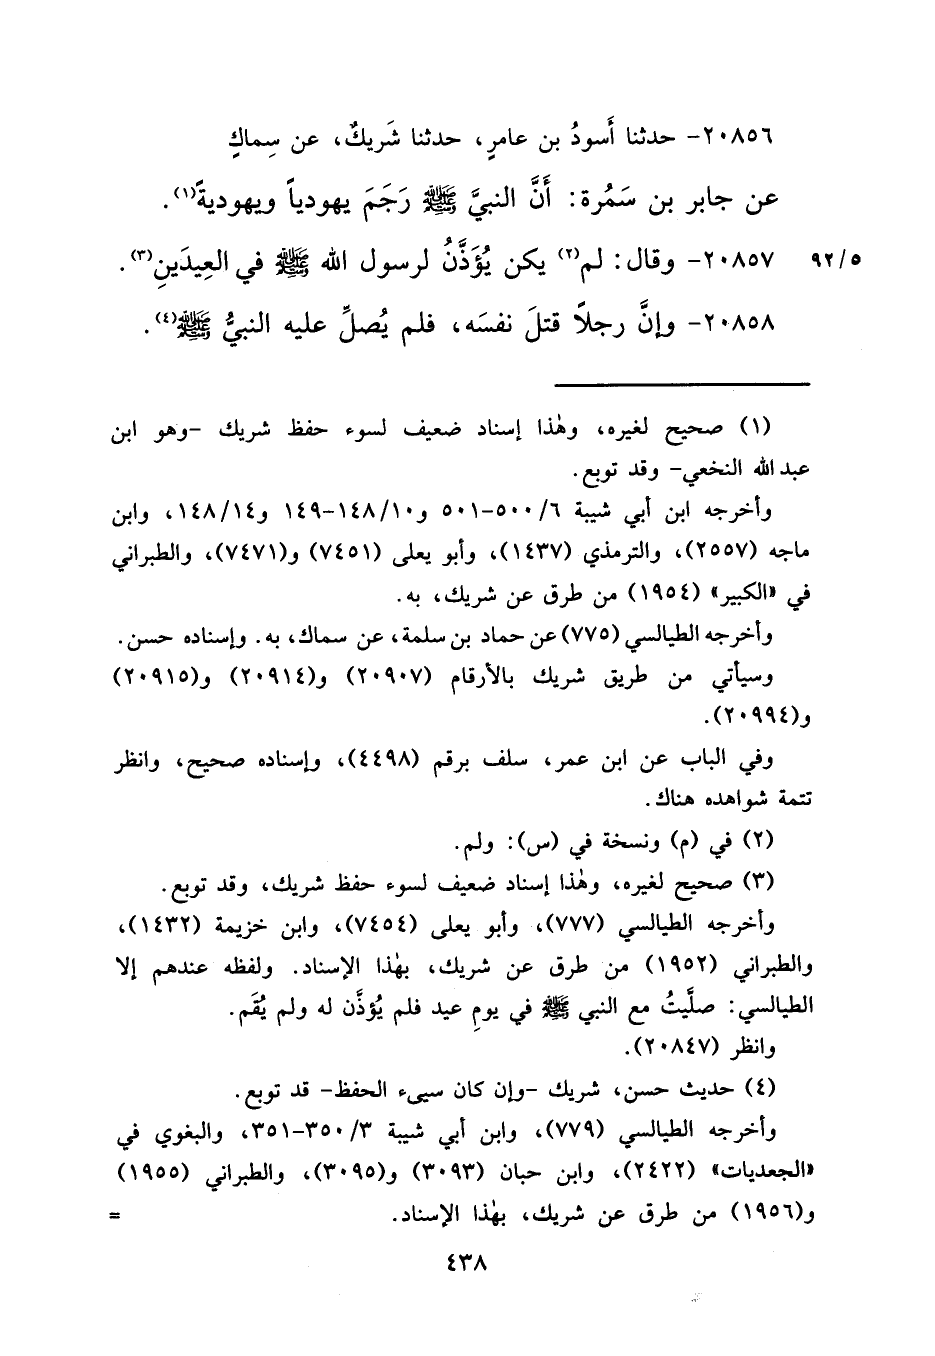 ٢٠٨٥٦- حدثنا أَسودُ بن عامرٍ، حدثنا شَريكٌ، عن سِماكٍ
عن جابر بن سَمُرة: أَنَّ النبيَّ ﷺ رَجَمَ يهودياً ويهوديةً(١).
٩٢/٥ ٢٠٨٥٧- وقال: لم(٢) يكن يُؤَذَّنُ لرسول الله ﷺ في العِيدَينِ(٣).
٢٠٨٥٨- وإنَّ رجلاً قتلَ نفسَه، فلم يُصلِّ عليه النبيُّ ﷺ(٤).
(١) صحيح لغيره، وهٰذا إسناد ضعيف لسوء حفظ شريك -وهو ابن
عبد الله النخعي- وقد توبع.
وأخرجه ابن أبي شيبة ٥٠٠/٦-٥٠١ و١٤٨/١٠-١٤٩ و١٤٨/١٤، وابن
ماجه (٢٥٥٧)، والترمذي (١٤٣٧)، وأبو يعلى (٧٤٥١) و(٧٤٧١)، والطبراني
في «الكبير» (١٩٥٤) من طرق عن شريك، به.
وأخرجه الطيالسي (٧٧٥) عن حماد بن سلمة، عن سماك، به. وإسناده حسن.
وسيأتي من طريق شريك بالأرقام (٢٠٩٠٧) و(٢٠٩١٤) و(٢٠٩١٥)
و(٢٠٩٩٤).
وفي الباب عن ابن عمر، سلف برقم (٤٤٩٨)، وإسناده صحيح، وانظر
تتمة شواهده هناك.
(٢) في (م) ونسخة في (س): ولم.
(٣) صحيح لغيره، وهٰذا إسناد ضعيف لسوء حفظ شريك، وقد توبع.
وأخرجه الطيالسي (٧٧٧)، وأبو يعلى (٧٤٥٤)، وابن خزيمة (١٤٣٢)،
والطبراني (١٩٥٢) من طرق عن شريك، بهٰذا الإسناد. ولفظه عندهم إلا
الطيالسي: صلَّيتُ مع النبي ﷺ في يومِ عيد فلم يُؤذَّن له ولم يُقَم.
وانظر (٢٠٨٤٧).
(٤) حديث حسن، شريك -وإن كان سيىء الحفظ- قد توبع.
وأخرجه الطيالسي (٧٧٩)، وابن أبي شيبة ٣٥٠/٣-٣٥١، والبغوي في
«الجعديات» (٢٤٢٢)، وابن حبان (٣٠٩٣) و(٣٠٩٥)، والطبراني (١٩٥٥)
و(١٩٥٦) من طرق عن شريك، بهٰذا الإسناد. =
٤٣٨